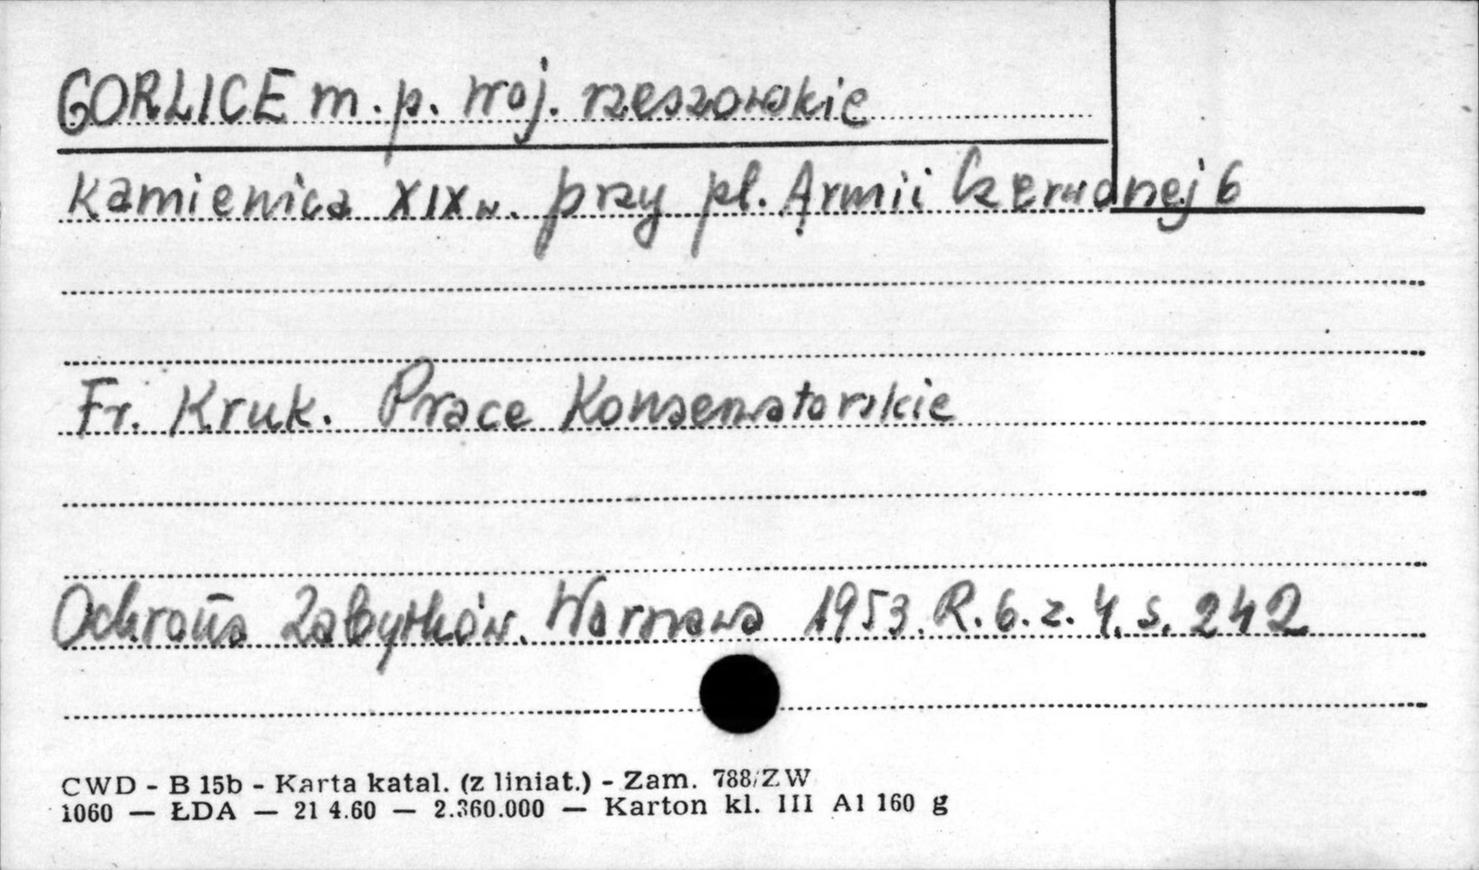 GORLICE m. p. woj. rzeszowskie
Kamienica XIX w. przy pl. Armii Czerwonej 6
Fr. Kruk. Prace Konserwatorskie
Ochrona Zabytków. Warszawa 1953. R. 6. z. 4. s. 242
CWD - B 15b - Karta katal. (z liniat.) - Zam. 788/ZW
1060 — ŁDA — 21 4.60 — 2.360.000 — Karton kl. III A1 160 g